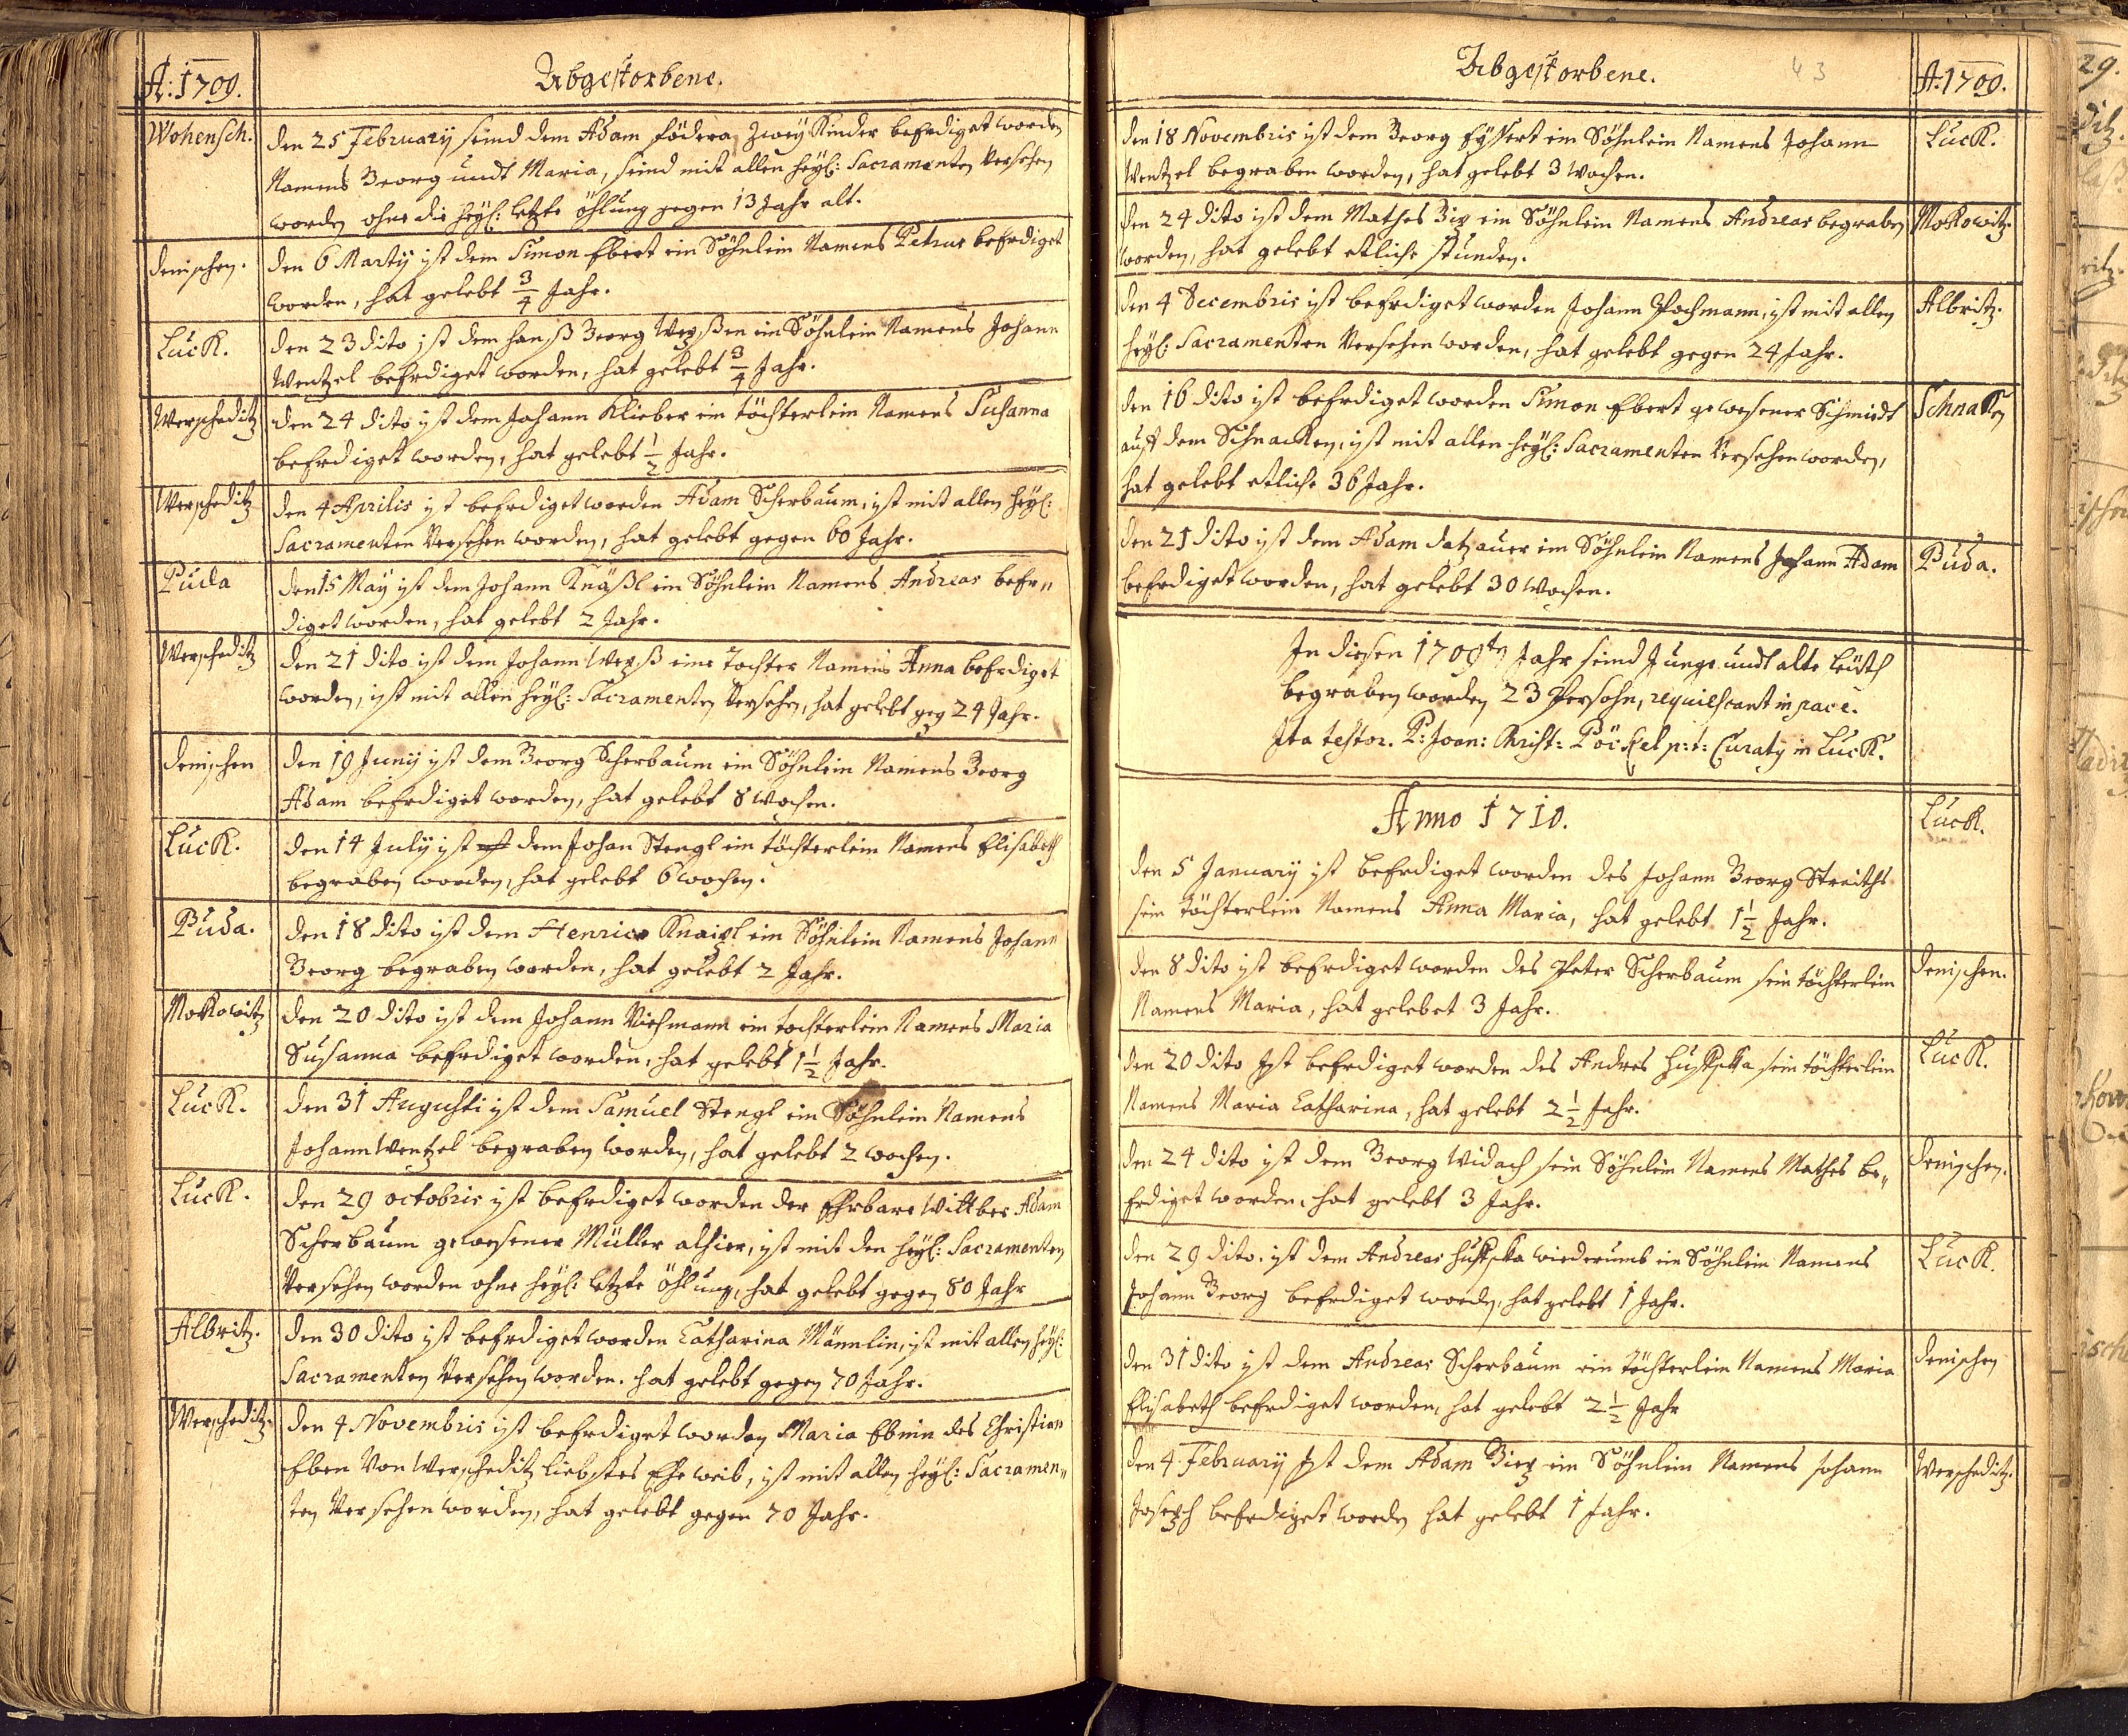 A: 1709.
Abgestorbene.
Wohensch.
den 25 February seind dem Adam födera zwey Kinder beerdiget worden
Namens Georg undt Maria, seind mit allen heyl: Sacramenten versehen
worden ohne die heyl: letzte öhlung gegen 13 Jahr alt.
denischen.
den 6 Marty ist dem Simon Ebert ein Söhnlein Namens Petrus beerdiget
worden, hat gelebt 3/4 Jahr.
Luck.
den 23 dito ist dem hanß Georg ein Söhnlein Namens Johann
Wentzel beerdiget worden, hat gelebt 3/4 Jahr.
Werscheditz
den 24 dito ist dem Johann Klieber ein töchterlein Namens Susanna
beerdiget worden, hat gelebt 1/2 Jahr.
Werscheditz
den 4 Aprilis ist beerdiget worden Adam Scherbaum, ist mit allen heyl:
Sacramenten versehen worden, hat gelebt gegen 60 Jahr.
Puda
den 15 May ist dem Johann Knäßl ein Söhnlein Namens Andreas beer„
diget worden, hat gelebt 2 Jahr.
Werscheditz
den 21 dito ist dem Johann eine Tochter Namens Anna beerdiget
worden, ist mit allen heyl: Sacramenten versehen, hat gelebt geg 24 Jahr.
denischen
den 19 Juny ist dem Georg Scherbaum ein Söhnlein Namens Georg
Adam beerdiget worden, hat gelebt 8 wochen.
Luck.
den 14 July ist dem Johan Stengl ein töchterlein Namens Elisabeth
begraben worden, hat gelebt 6 wochen.
Puda.
den 18 dito ist dem Henrico Knaizl ein Söhnlein Namens Johann
Georg begraben worden, hat gelebt 2 Jahr.
Mokowitz
den 20 dito ist dem Johann Viehmann ein tochterlein Namens Maria
Susanna beerdiget worden, hat gelebt 1 1/2 Jahr.
Luck.
den 31 Augusti ist dem Samuel Stengl ein Söhnlein Namens
Johann Wentzel begraben worden, hat gelebt 2 wochen.
Luck.
den 29 octobris ist beerdiget worden der Ehrbare Wittber Adam
Scherbaum gewesener Müller alhier, ist mit den heyl: Sacramenten
versehen worden ohne heyl: letzte öhlung, hat gelebt gegen 80 Jahr
Albritz.
den 30 dito ist beerdiget worden Catharina Männlin, ist mit allen heyl:
Sacramenten versehen worden. hat gelebt gegen 70 Jahr.
Werscheditz.
den 4 Novembris ist beerdiget worden Maria Ebnin des Christian
Eben von Werscheditz liebstes Ehe weib, ist mit allen heyl: Sacramen„
ten versehen worden, hat gelebt gegen 70 Jahr.
Abgestorbene.
43
A: 1709.
den 18 Novembris ist dem Georg ein Söhnlein Namens Johann
Wentzel begraben worden, hat gelebt 3 Wochen.
Luck.
den 24 dito ist dem Mathes ein Söhnlein Namens Andreas begraben
worden, hat gelebt etliche stunden.
Mokowitz.
den 4 Decembris ist beerdiget worden Johann Pochmann, ist mit allen
heyl: Sacramenten versehen worden, hat gelebt gegen 24 Jahr.
Albritz.
den 16 dito ist beerdiget worden Simon Ebert gewesener Schmiedt
auff dem Schnacken, ist mit allen heyl: Sacramenten versehen worden,
hat gelebt etliche 36 Jahr.
Schnaken
den 21 dito ist dem Adam datzauer ein Söhnlein Namens Johann Adam
beerdiget worden, hat gelebt 30 Wochen.
Puda.
In diesen 1709ten Jahr seind Junge undt alte Leüth
begraben worden 23 Persohn, requiescant in pace.
Ita testor. P: Joan: Christ: Pöckel p:t: Curaty in Luck.
Anno 1710.
Luck.
den 5 January ist beerdiget worden des Johann Georg Streiths
sein töchterlein Namens Anna Maria, hat gelebt 1 1/2 Jahr.
den 8 dito ist beerdiget worden des Peter Scherbaum sein töchterlein
Namens Maria, hat gelebet 3 Jahr.
denischen.
den 20 dito Ist beerdiget worden des Andres sein töchterlein
Namens Maria Catharina, hat gelebt 2 1/2 Jahr.
Luck.
den 24 dito ist dem Georg Widach sein Söhnlein Namens Mathes be„
erdiget worden, hat gelebt 3 Jahr.
denischen.
den 29 dito. ist dem Andreas wiederumb ein Söhnlein Namens
Johann Georg beerdiget worden, hat gelebt 1 Jahr.
Luck.
den 31 dito ist dem Andreas Scherbaum ein töchterlein Namens Maria
Elisabeth beerdiget worden, hat gelebt 2 1/2 Jahr
denischen
den 4 February Ist dem Adam ein Söhnlein Namens Johann
Joseph beerdiget worden hat gelebt 1 Jahr.
Werscheditz.